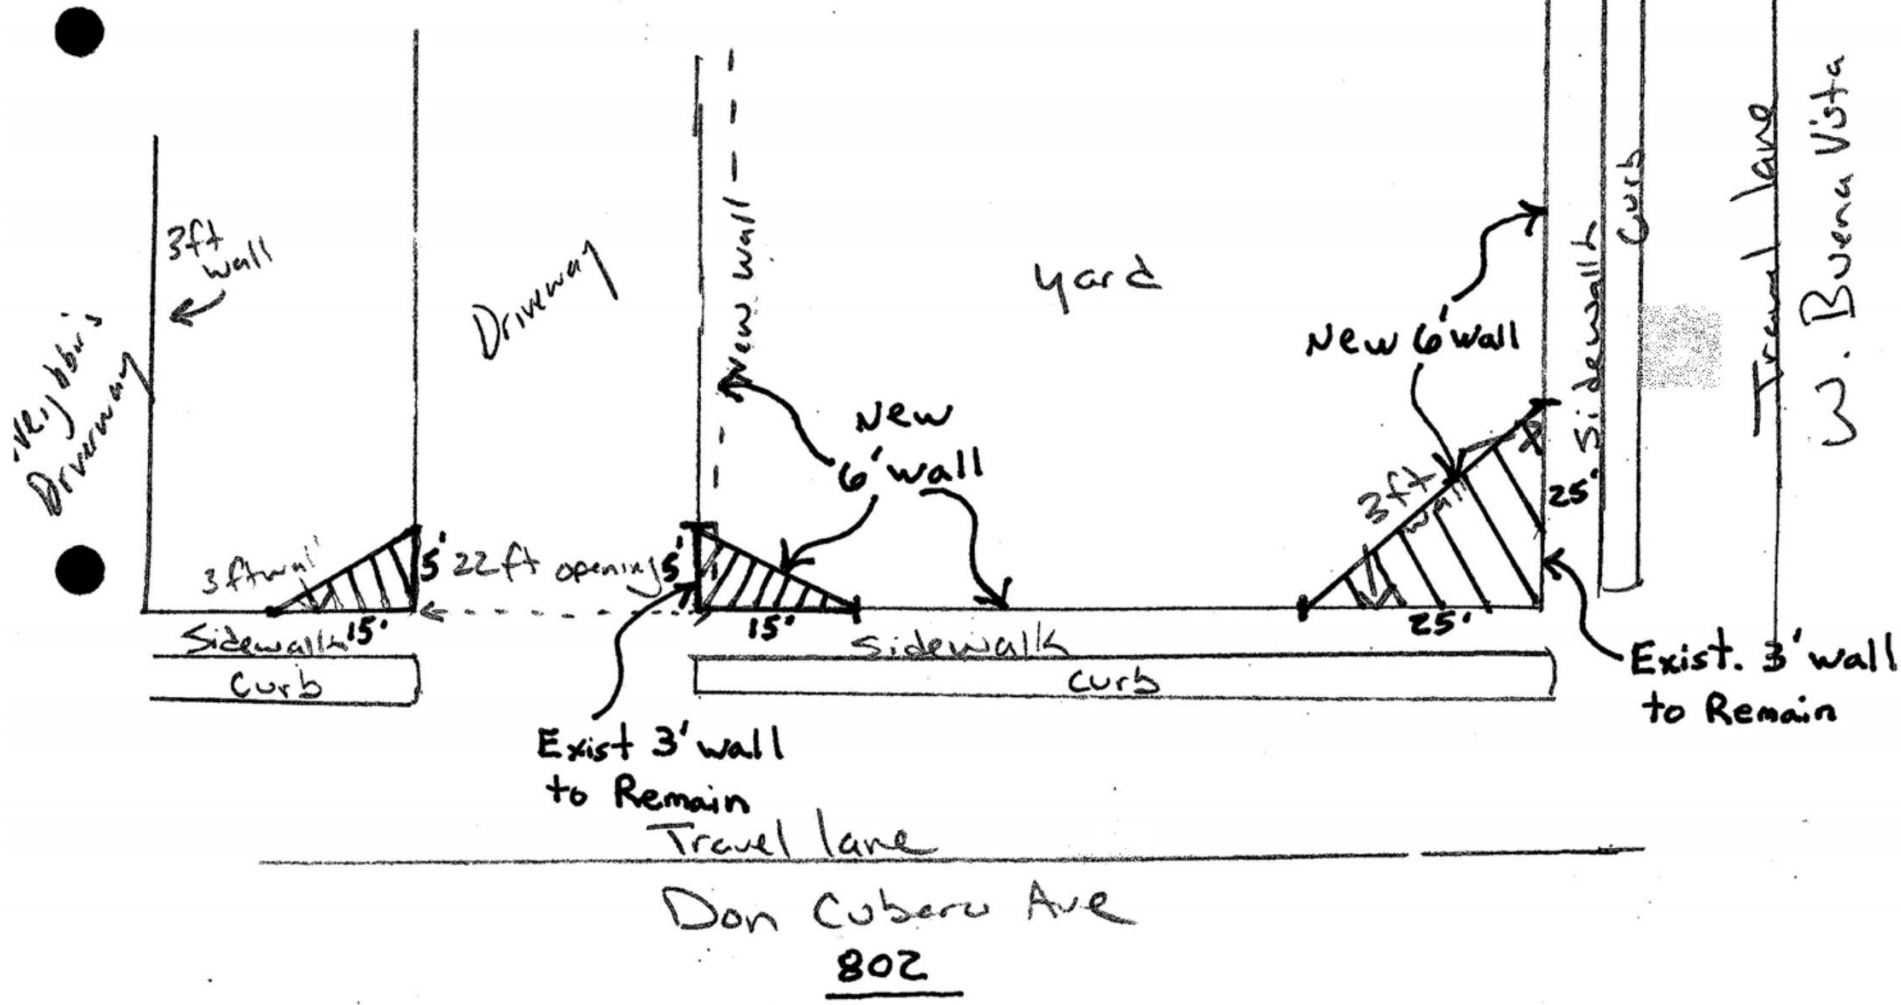 3ft
wall
Driveway
Driveway
New wall
yard
New
6' wall
New 6' wall
3ft
wall
Sidewalk
Curb
Travel lane
W. Buena Vista
25'
25'
3ft wall
5'
22ft opening
5'
15'
15'
Sidewalk
Sidewalk
Curb
Curb
Exist. 3' wall
to Remain
Exist 3' wall
to Remain
Travel lane
Don Cubero Ave
802